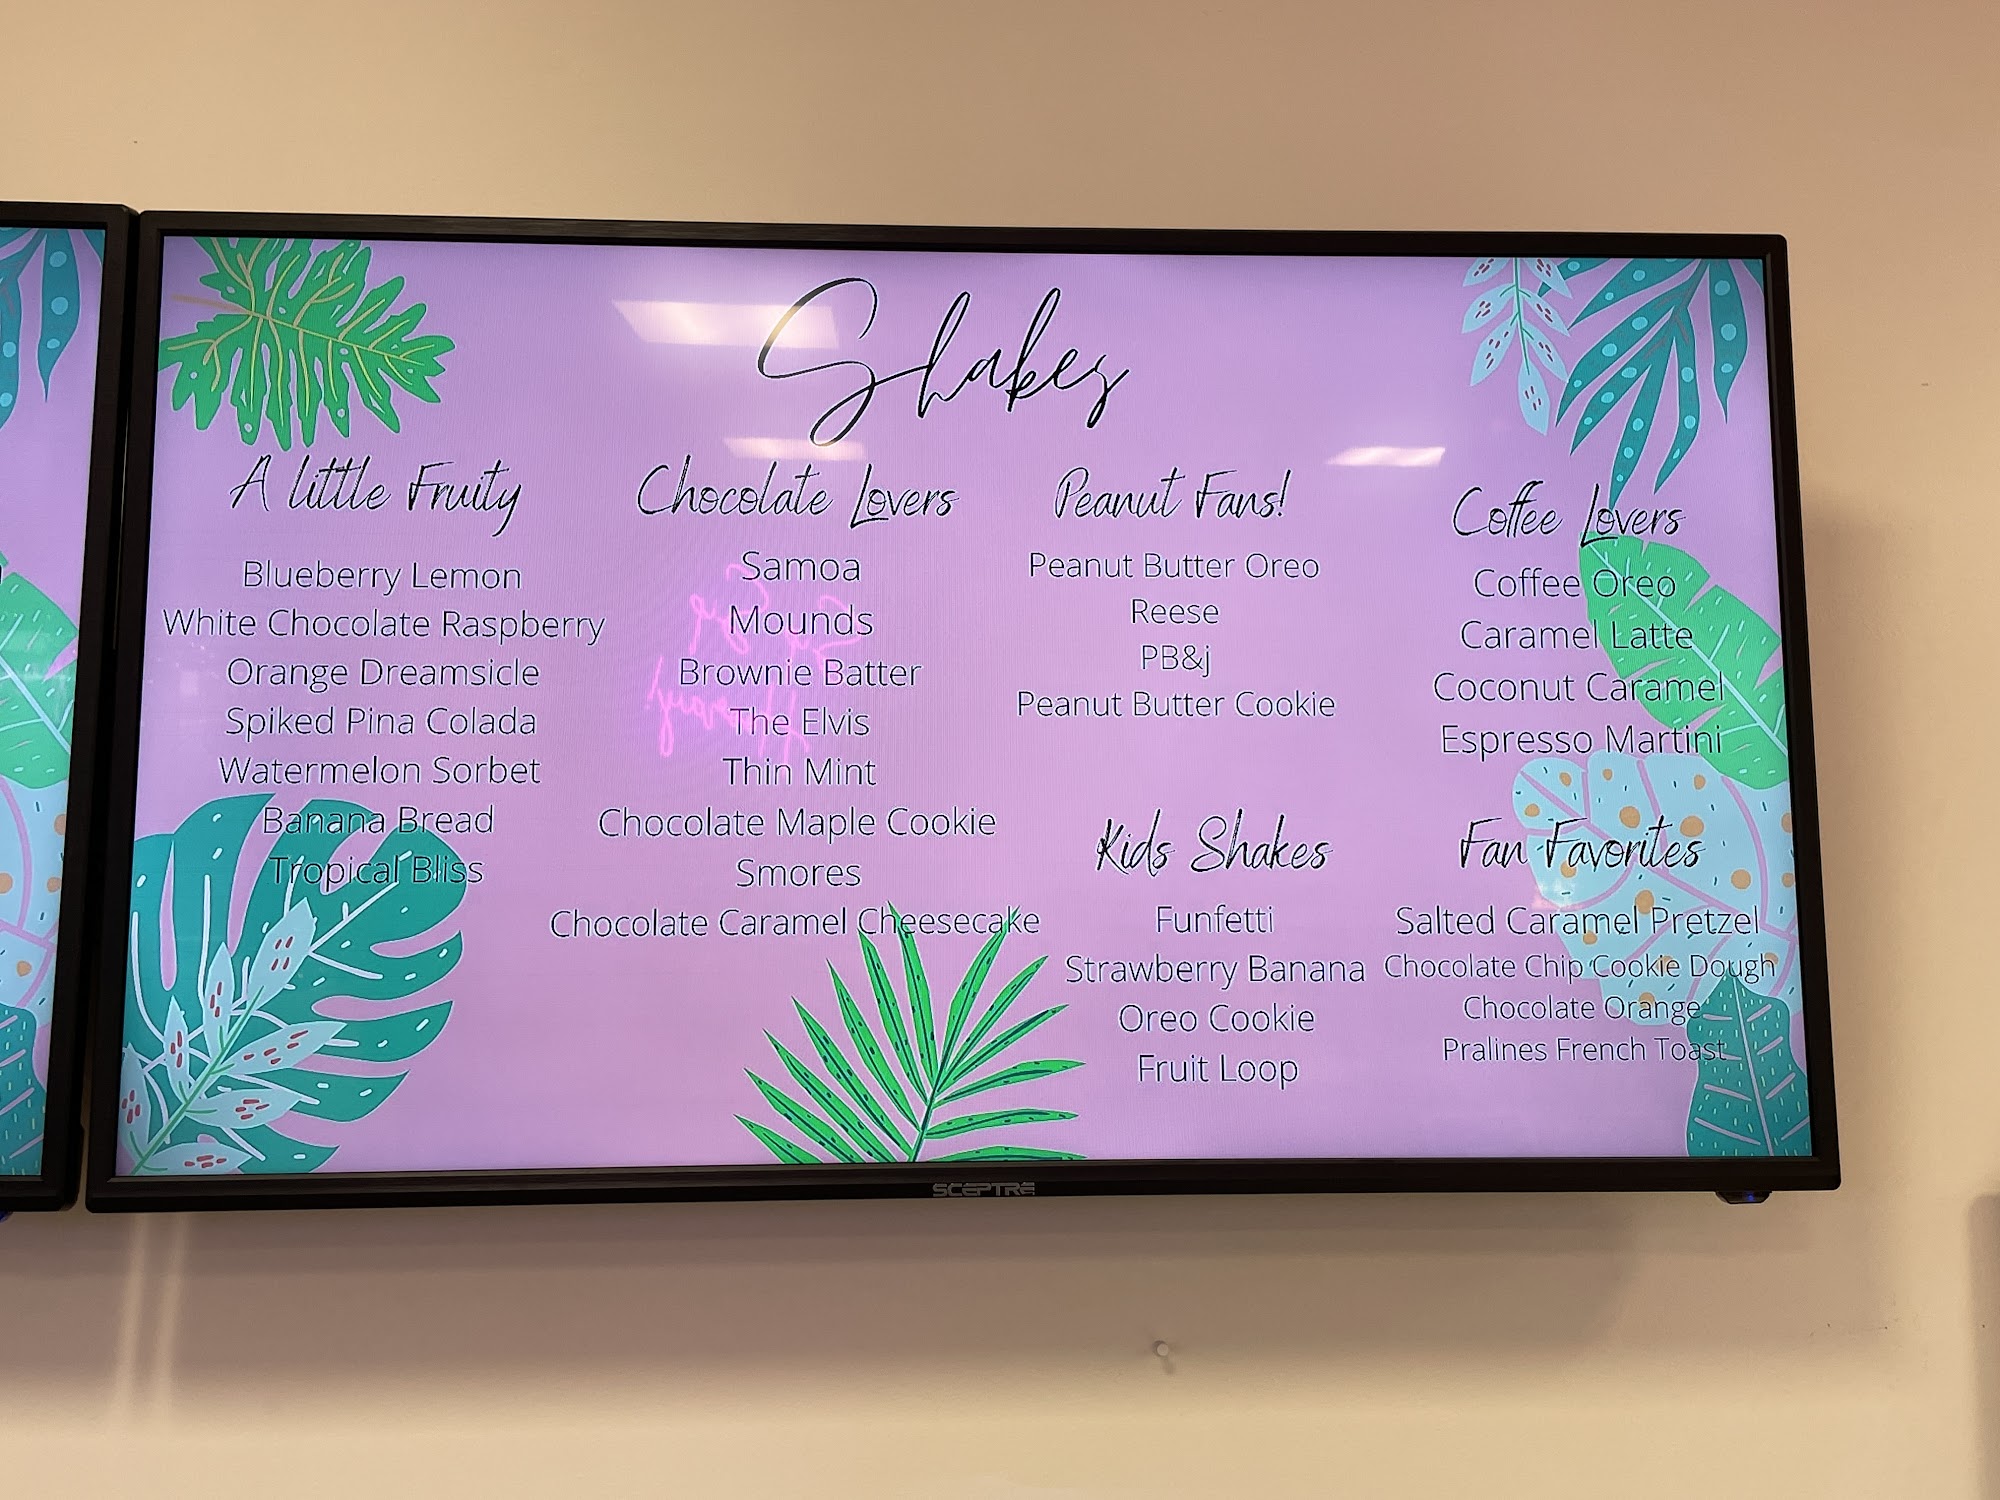 Shakes
A little Fruity
Blueberry Lemon
White Chocolate Raspberry
Orange Dreamsicle
Spiked Pina Colada
Watermelon Sorbet
Banana Bread
Tropical Bliss
Chocolate Lovers
Samoa
Mounds
Brownie Batter
The Elvis
Thin Mint
Chocolate Maple Cookie
Smores
Chocolate Caramel Cheesecake
Peanut Fans!
Peanut Butter Oreo
Reese
PB&j
Peanut Butter Cookie
Kids Shakes
Funfetti
Strawberry Banana
Oreo Cookie
Fruit Loop
Coffee Lovers
Coffee Oreo
Caramel Latte
Coconut Caramel
Espresso Martini
Fan Favorites
Salted Caramel Pretzel
Chocolate Chip Cookie Dough
Chocolate Orange
Pralines French Toast
SCEPTRE